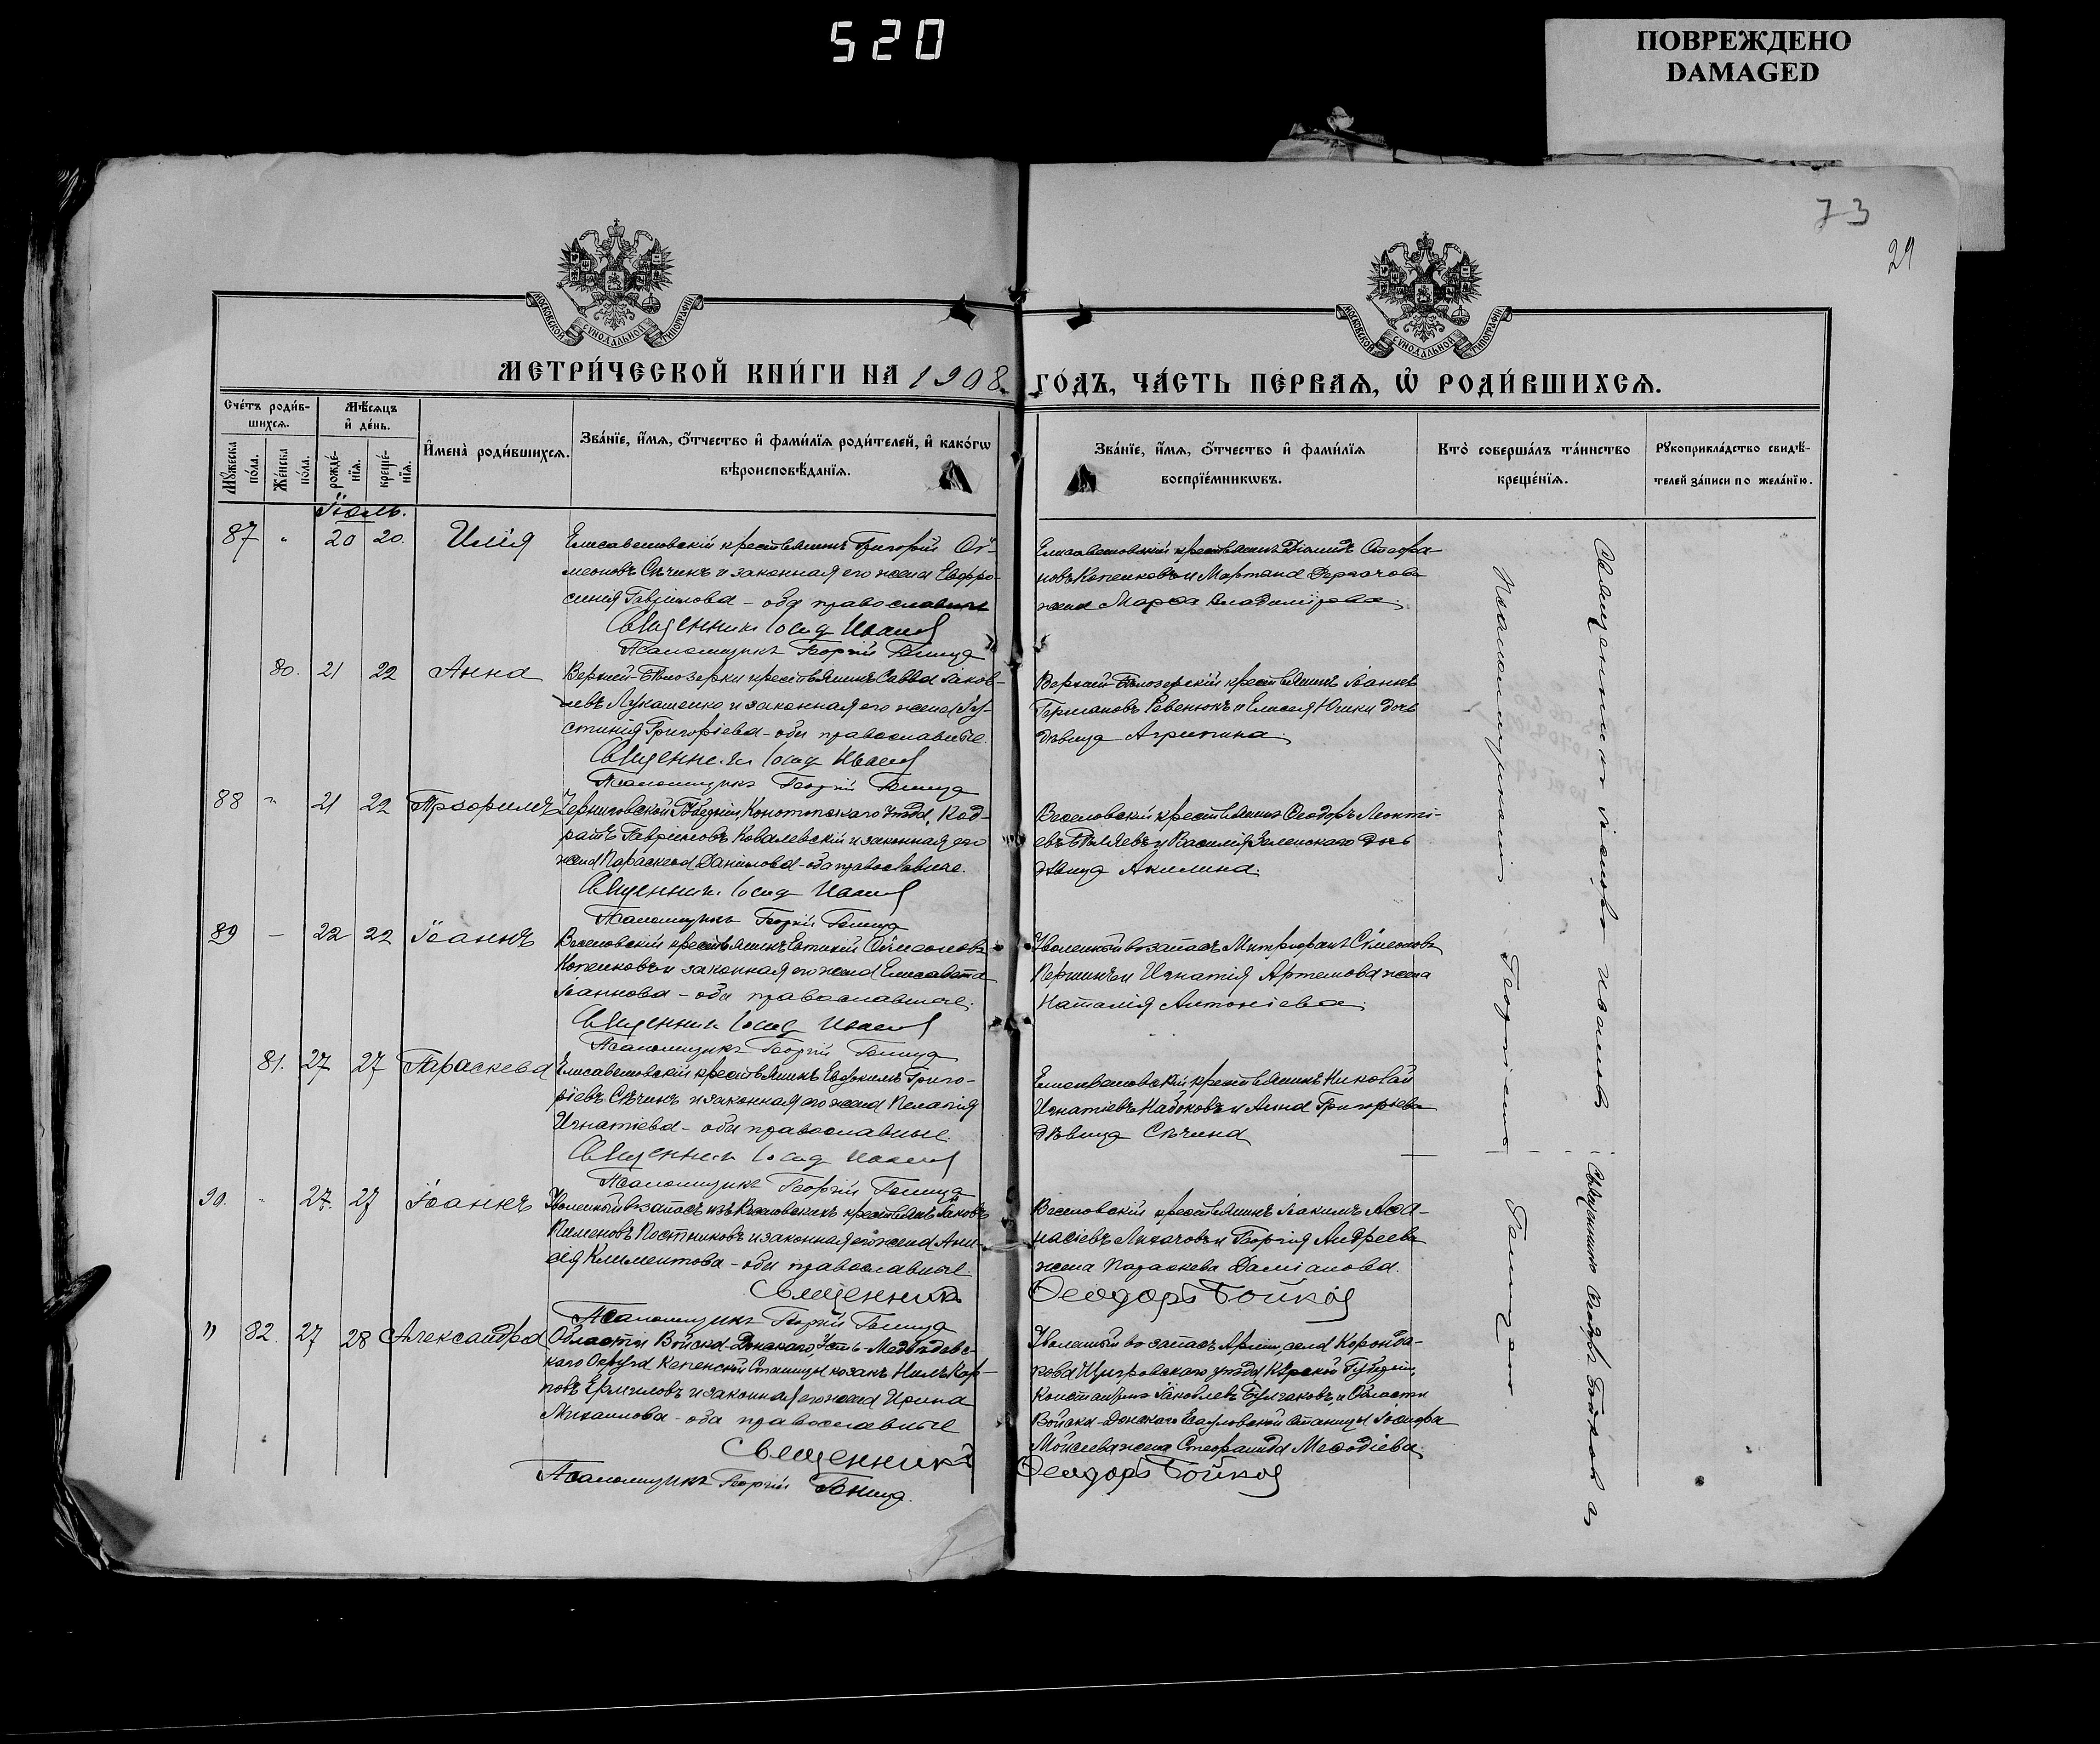 520
ПОВРЕЖДЕНО
DAMAGED
73
29
МОСКОВСКОЙ СѴНОДАЛЬНОЙ ТИПОГРАФІИ
МОСКОВСКОЙ СѴНОДАЛЬНОЙ ТИПОГРАФІИ
МЕТРИ́ЧЕСКОЙ КНИ́ГИ НА 1908
ГО́ДЪ, ЧА́СТЬ ПЕ́РВАѦ, Ѡ҆ РОДИ́ВШИХСѦ.
Сче́тъ роди́в-
шихсѧ.
Мꙋ́жеска
по́ла.
Же́нска
по́ла.
Мѣ́сѧцъ
и҆ де́нь.
рожде́-
нїѧ.
креще́-
нїѧ.
И҆мена̀ роди́вшихсѧ.
Зва́нїе, и҆́мѧ, ѻ҆́тчество и҆ фами́лїѧ роди́телей, и҆ како́гѡ
вѣроисповѣ́данїѧ.
Зва́нїе, и҆́мѧ, ѻ҆́тчество и҆ фами́лїѧ
воспрїе́мникѡвъ.
Кто̀ соверша́лъ та́инство
креще́нїѧ.
Рꙋкоприкла́дство свидѣ́-
телей за́писи по жела́нїю.
Іюль.
87 " 20 20. Илія
Елисаветовскій крестьянинъ Григорій Сѵ-
меоновъ Сѣчинъ и законная его жена Евфро-
синія Гавріилова - оба православные
Священникъ Іосиф Иванов
Псаломщикъ Георгій Гемица
Елисаветовскій крестьянинъ Діомидъ Стефа-
новъ Копенковъ и Мартина жена Марфа Владимірова.
80. 21 22 Анна
Верхней-Бѣлозерки крестьянинъ Савва Іаков-
левъ Лукашенко и законная его жена Іу-
стинія Григоріева - оба православные.
Священникъ Іосиф Иванов
Псаломщикъ Георгій Гемица
Верхней-Бѣлозерскій крестьянинъ Іоаннъ
Германовъ Ревенюкъ и Елисея дочь
дѣвица Агрипина.
88 " 21 22 Трофимъ
Черниговской Губерніи, Конотопскаго уѣзда, Код-
ратъ Гавріиловъ Ковалевскій и законная его
жена Параскева Даніилова - оба православные.
Священникъ Іосиф Иванов
Псаломщикъ Георгій Гемица
Веселовскій крестьянинъ Ѳеодоръ Леонті-
евъ Бѣляевъ и Василія Зеленскаго дочь
дѣвица Акилина.
89 - 22 22 Іоаннъ
Веселовскій крестьянинъ Евтихій Сѵмеоновъ
Копенковъ и законная его жена Елисавета
Іоаннова - оба православные.
Священникъ Іосиф Иванов
Псаломщикъ Георгій Гемица
Уволенный въ запасъ Митрофанъ Сѵмеоновъ
Першинъ и Игнатія Артемова жена
Наталія Антоніева.
81. 27 27 Параскева
Елисаветовскій крестьянинъ Евдокимъ Григо-
ріевъ Сѣчинъ и законная его жена Пелагія
Игнатіева - оба православные.
Священникъ Іосиф Иванов
Псаломщикъ Георгій Гемица
Елисаветовскій крестьянинъ Николай
Игнатіевъ Набоковъ и Анна Григоріева
дѣвица Сѣчина
90. " 27. 27 Іоаннъ
Уволенный въ запасъ изъ Веселовскихъ крестьянъ Іаковъ
Пименовъ Постниковъ и законная его жена Ани-
сія Климентова - оба православные.
Священникъ
Псаломщикъ Георгій Гемица
Веселовскій крестьянинъ Іоакимъ Аѳа-
насіевъ Лихачовъ и Георгія Андреева
жена Параскева Даміанова.
Ѳеодоръ Бойков
" 82. 27 28 Александра
Области Войска-Донскаго, Усть-Медвѣдевс-
каго Округа Кепенской Станицы козакъ Нилъ Кар-
повъ Ермиловъ и законная его жена Ирина
Михаилова - оба православные
Священникъ
Псаломщикъ Георгій Гемица.
Уволенный въ запасъ Арміи, села
Щигровскаго уѣзда Курской Губерніи,
Константинъ Іаковлевъ Булгаковъ и Области
Войска-Донскаго Есауловской Станицы Іосифа
Моисеева жена Стефанида Меѳодіева.
Ѳеодоръ Бойков
Священникъ Іосифъ Ивановъ
Священникъ Ѳеодоръ Бойковъ съ
Псаломщикомъ Георгіемъ Гемицою.